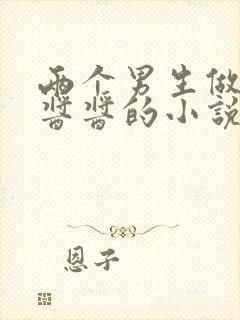 两个男生做
酱酱的小说
恩子